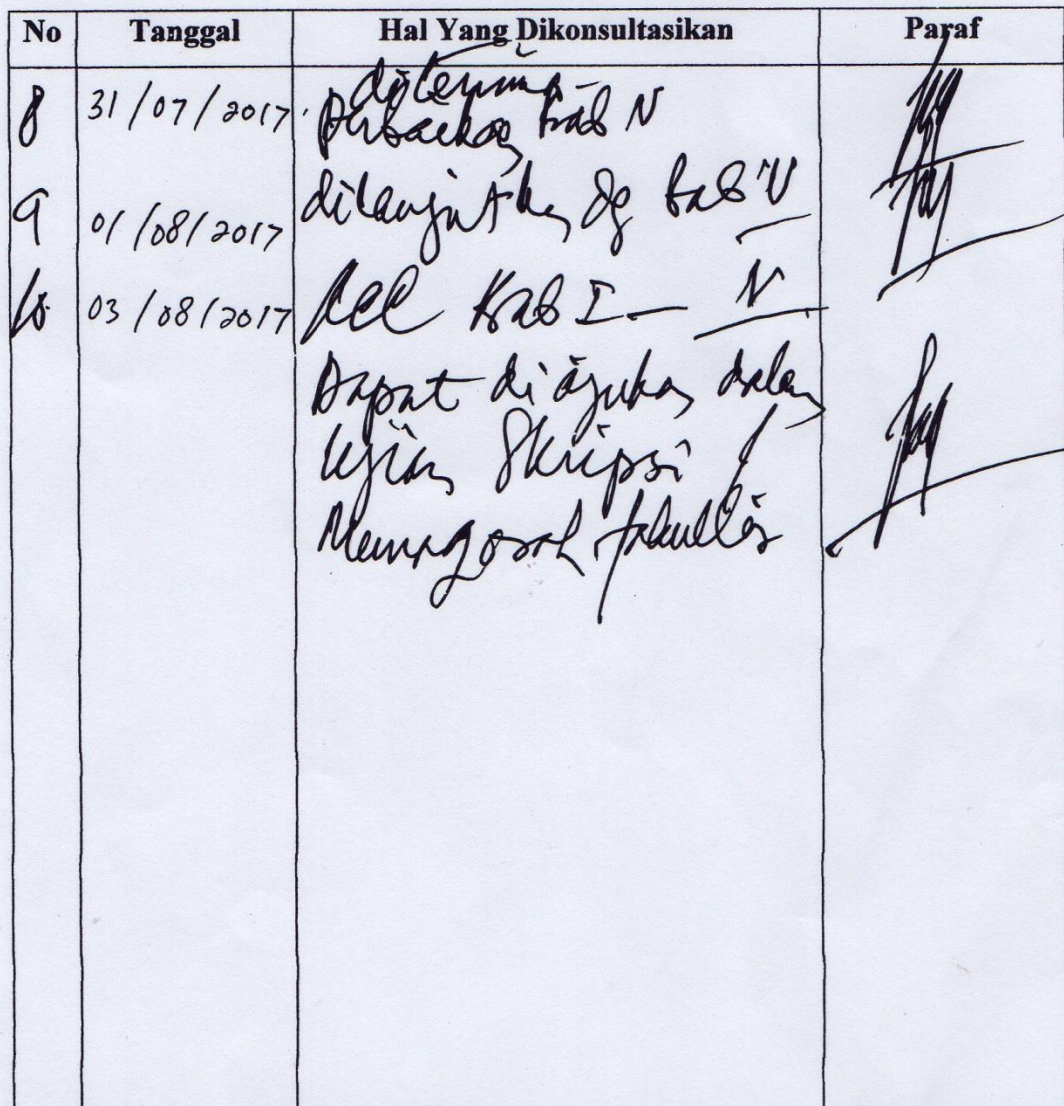 No Tanggal Hal Yang Dikonsultasikan Paraf
diterima
8 31/07/2017 Perbaikan bab IV
9 01/08/2017 dilanjutkan dg bab V
10 03/08/2017 Acc Bab I - V
Dapat diajukan dalam
Ujian Skripsi /
Munaqosah fakultas